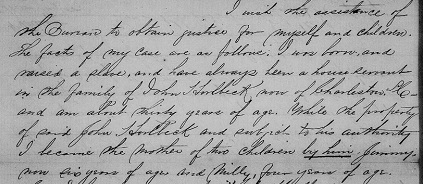 I wish the assistance of
the Bureau to obtain justice for myself and children.
The facts of my case are as follow: I was born, and
raised a slave, and have always been a house servant
in the family of John Holbeck now of Charleston, S.C.
and am about thirty years of age. While the property
of said John Holbeck and subject to his authority
I became the mother of two children by him Jimmy
now six years of age and Milly, four years of age.